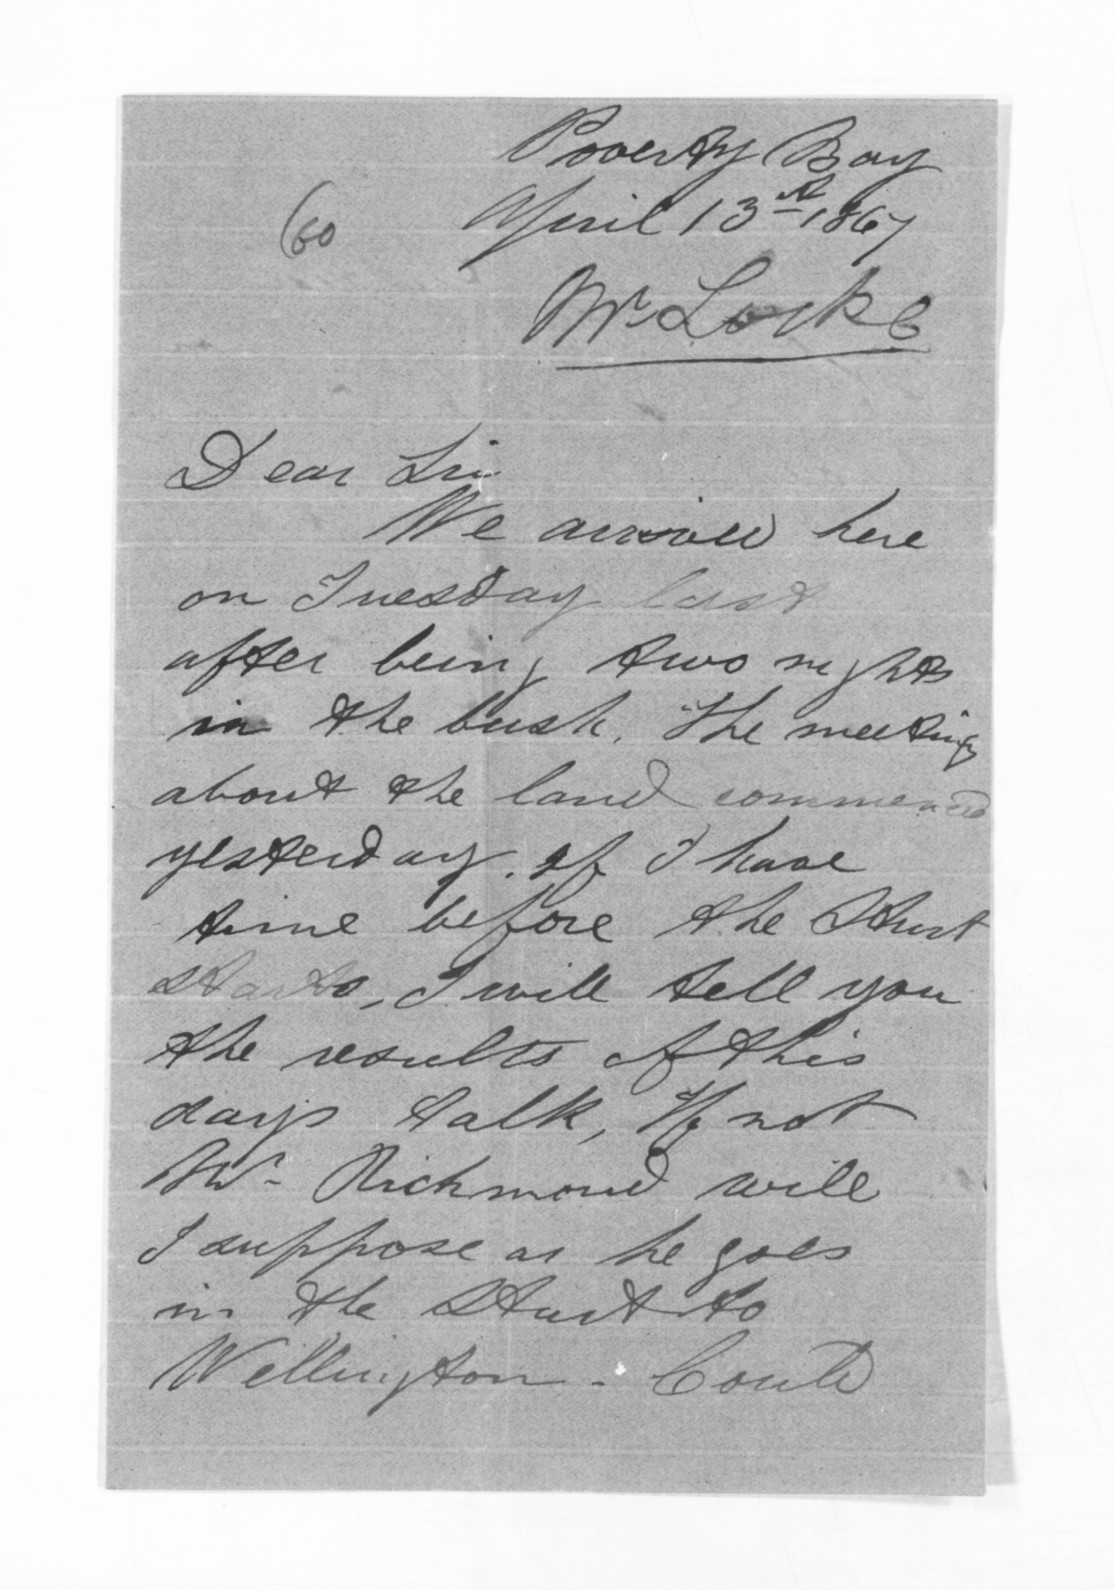 Poverty Bay
April 13th 1867
(60
Mr Locke
Dear Sir
We arrived here
on Tuesday last
after being two nights
in the bush. The meeting
about the land commenced
yesterday. If I have
time before the Sturt
starts, I will tell you
the results of this
days talk, If not
Mr. Richmond will
I suppose as he goes
in the Sturt to
Wellington - Could